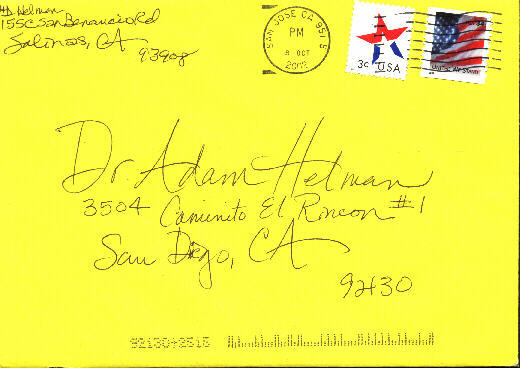 HD. Helman
155C San Benancio Rd
Salinas, CA
93908
SAN JOSE CA 951 5
PM
8 OCT
2002
3c USA
USA 34
United We Stand
Dr. Adam Helman
3504 Caminito El Rincon #1
San Diego, CA
92130
92130+2515